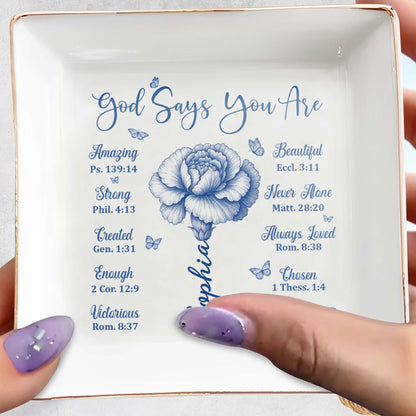 God Says You Are
Amazing
Ps. 139:14
Strong
Phil. 4:13
Created
Gen. 1:31
Enough
2 Cor. 12:9
Victorious
Rom. 8:37
Sophia
Beautiful
Eccl. 3:11
Never Alone
Matt. 28:20
Always Loved
Rom. 8:38
Chosen
1 Thess. 1:4